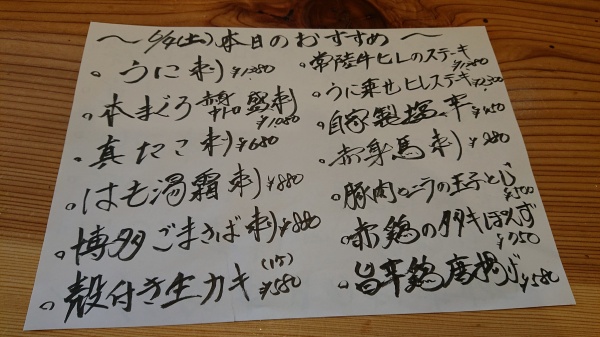 〜6/4(土)本日のおすすめ〜
。うに刺 ¥1,380
。本まぐろ 赤身 中トロ 盛刺 ¥1,080
。真たこ刺 ¥680
。はも湯霜刺 ¥880
。博多ごまさば刺 ¥880
。殻付き生カキ(1ケ) ¥580
。常陸牛ヒレのステーキ
。うに乗せヒレステーキ ¥2,300
。自家製塩辛 ¥450
。赤身馬刺
。豚肉とニラの玉子とじ
。赤鶏のタタキぽんず ¥750
。旨辛鶏唐揚げ ¥580